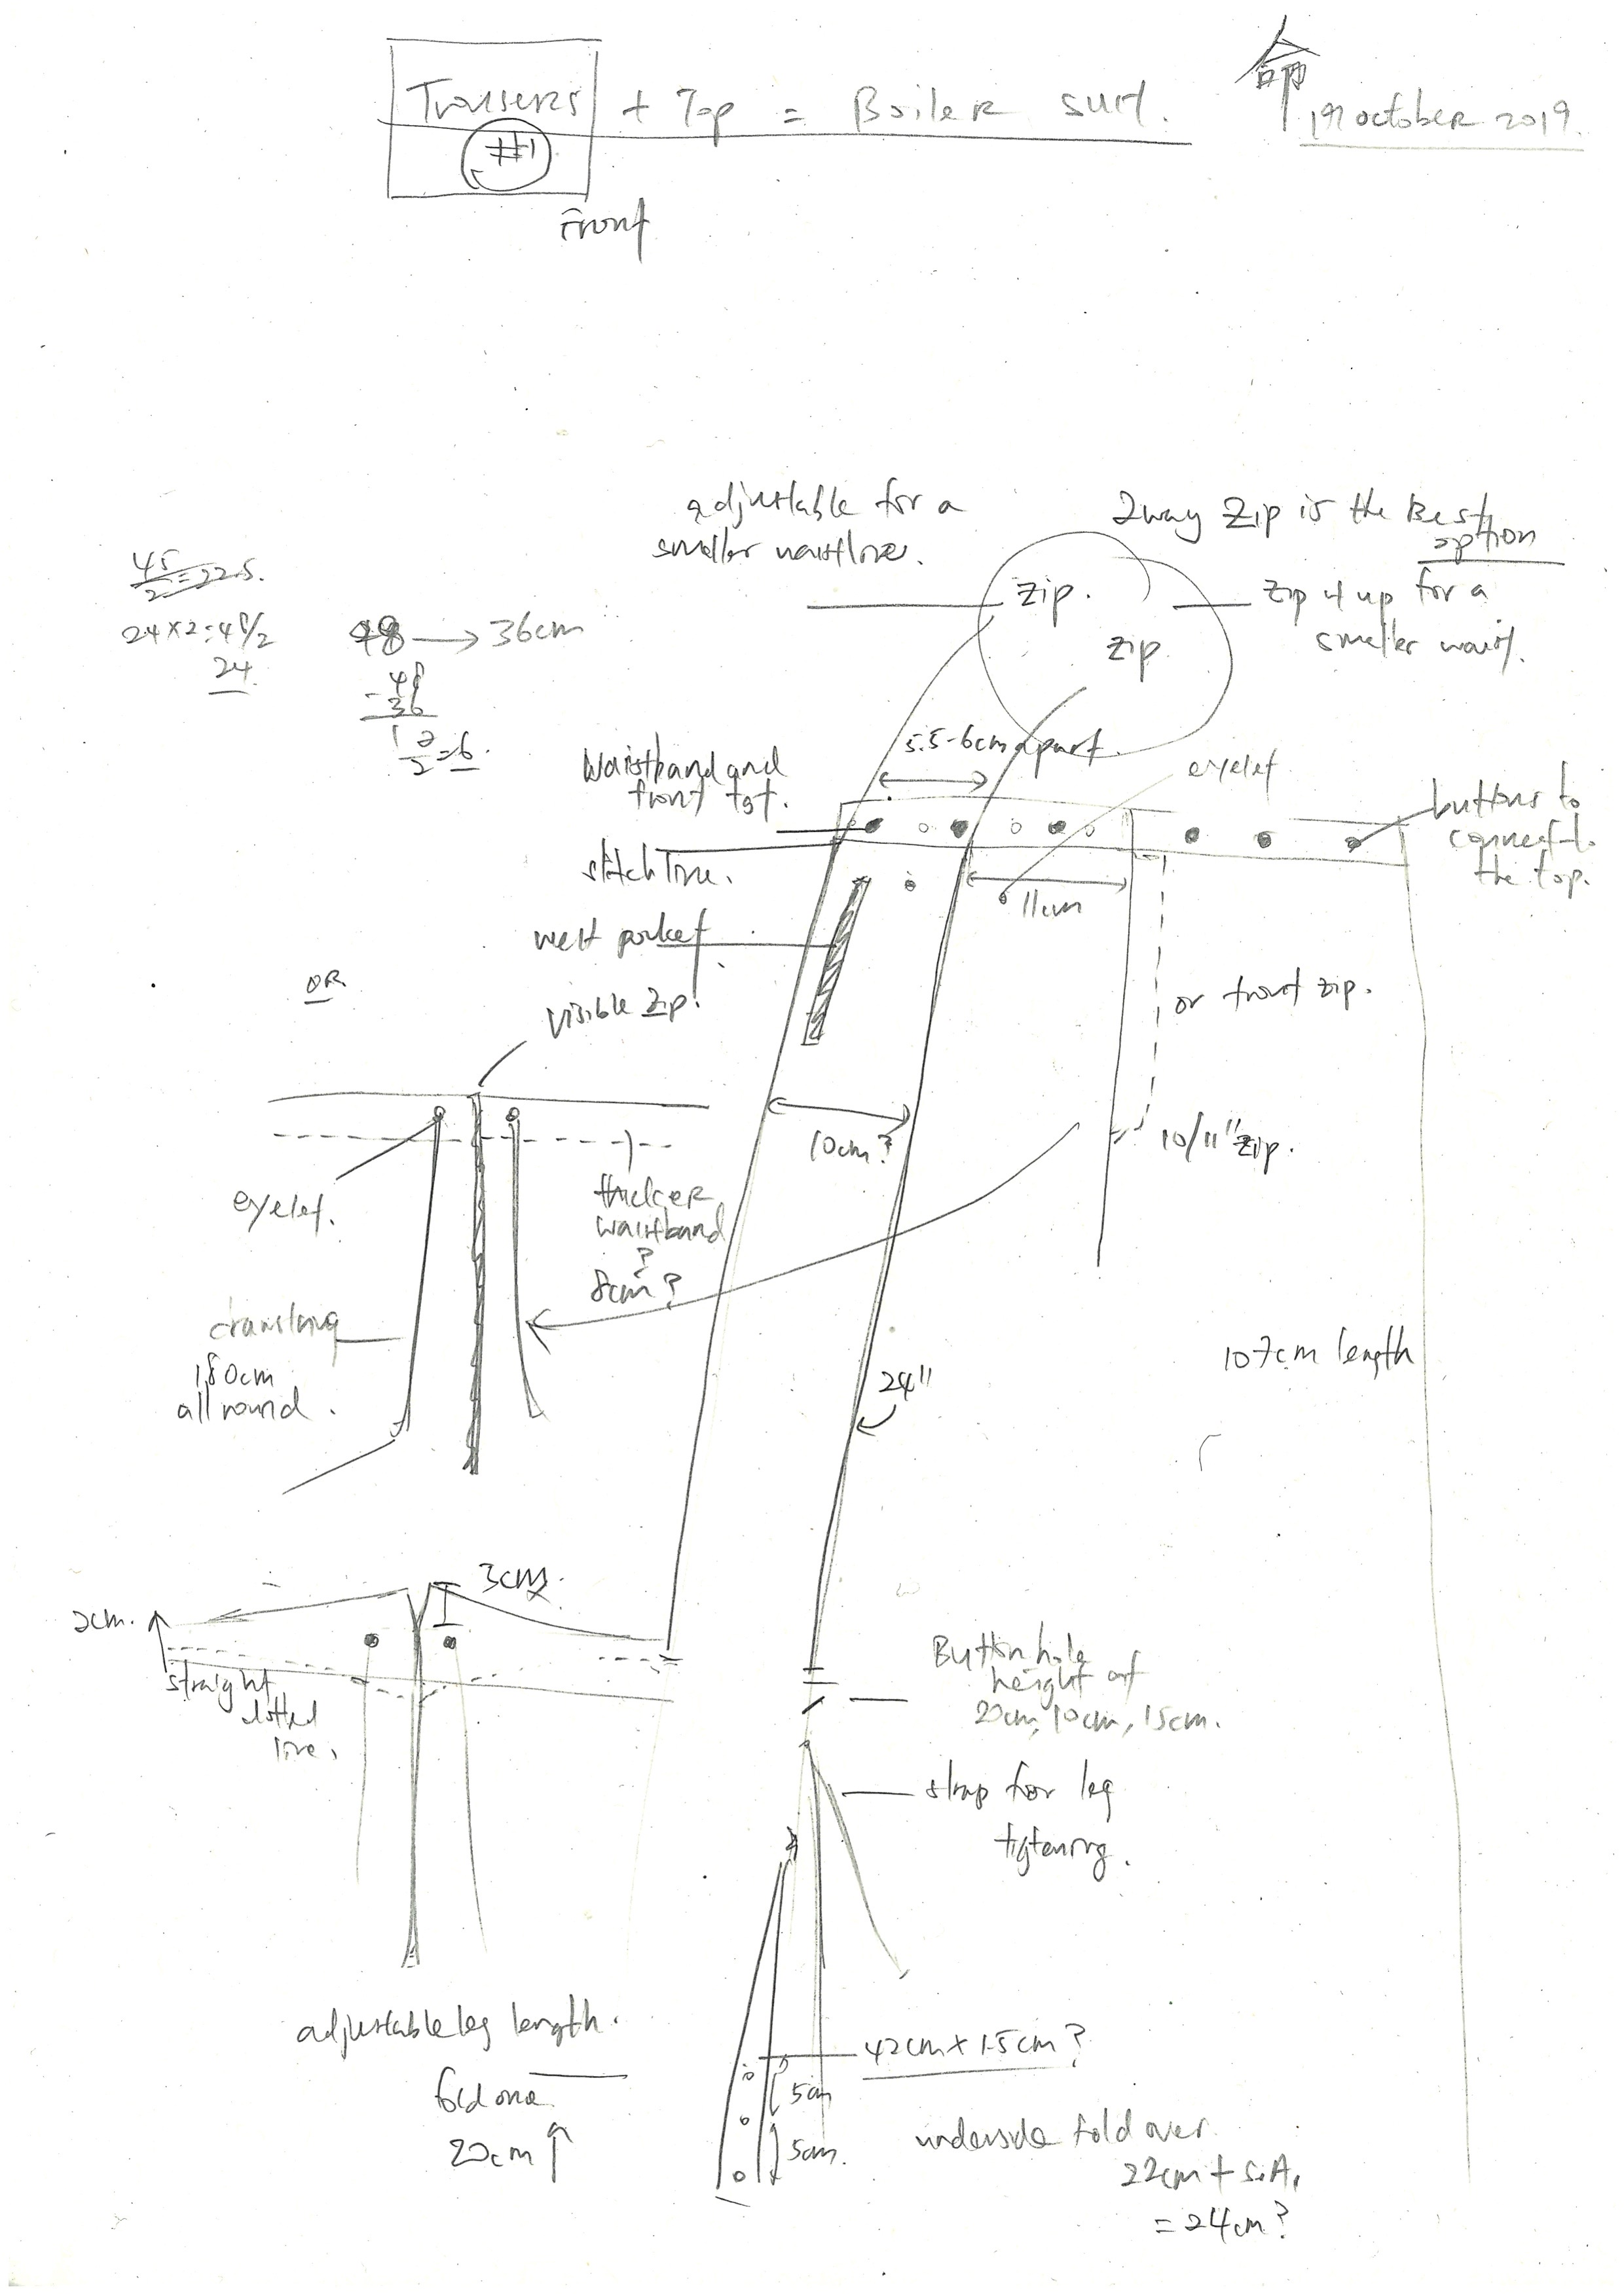 Trousers + Top = Boiler suit.
#1
Front
命
19 october 2019.
adjustable for a
smaller waistline.
2way Zip is the Best
option
zip.
zip
Zip it up for a
smaller waist.
45/2 = 22.5.
24 x 2 = 48/2
24
48 → 36cm
48
- 36
12/2 = 6.
5.5-6cm apart.
Waistband and
front
eyelet
buttons to
connect to
the top.
stitch line.
11cm
welt pocket
OR
visible zip.
or front zip.
10cm?
10/11" zip.
eyelet.
thicker
waistband
?
8cm?
180cm
all round.
24"
107cm length
3cm.
2cm.
straight
dotted
line.
Button hole
height of
20cm, 10cm, 15cm.
strap for leg
tigtening.
adjustable leg length.
fold one
20cm ↑
42cm x 1.5cm?
5cm
5cm.
underside fold over
22cm + S.A.
= 24cm?